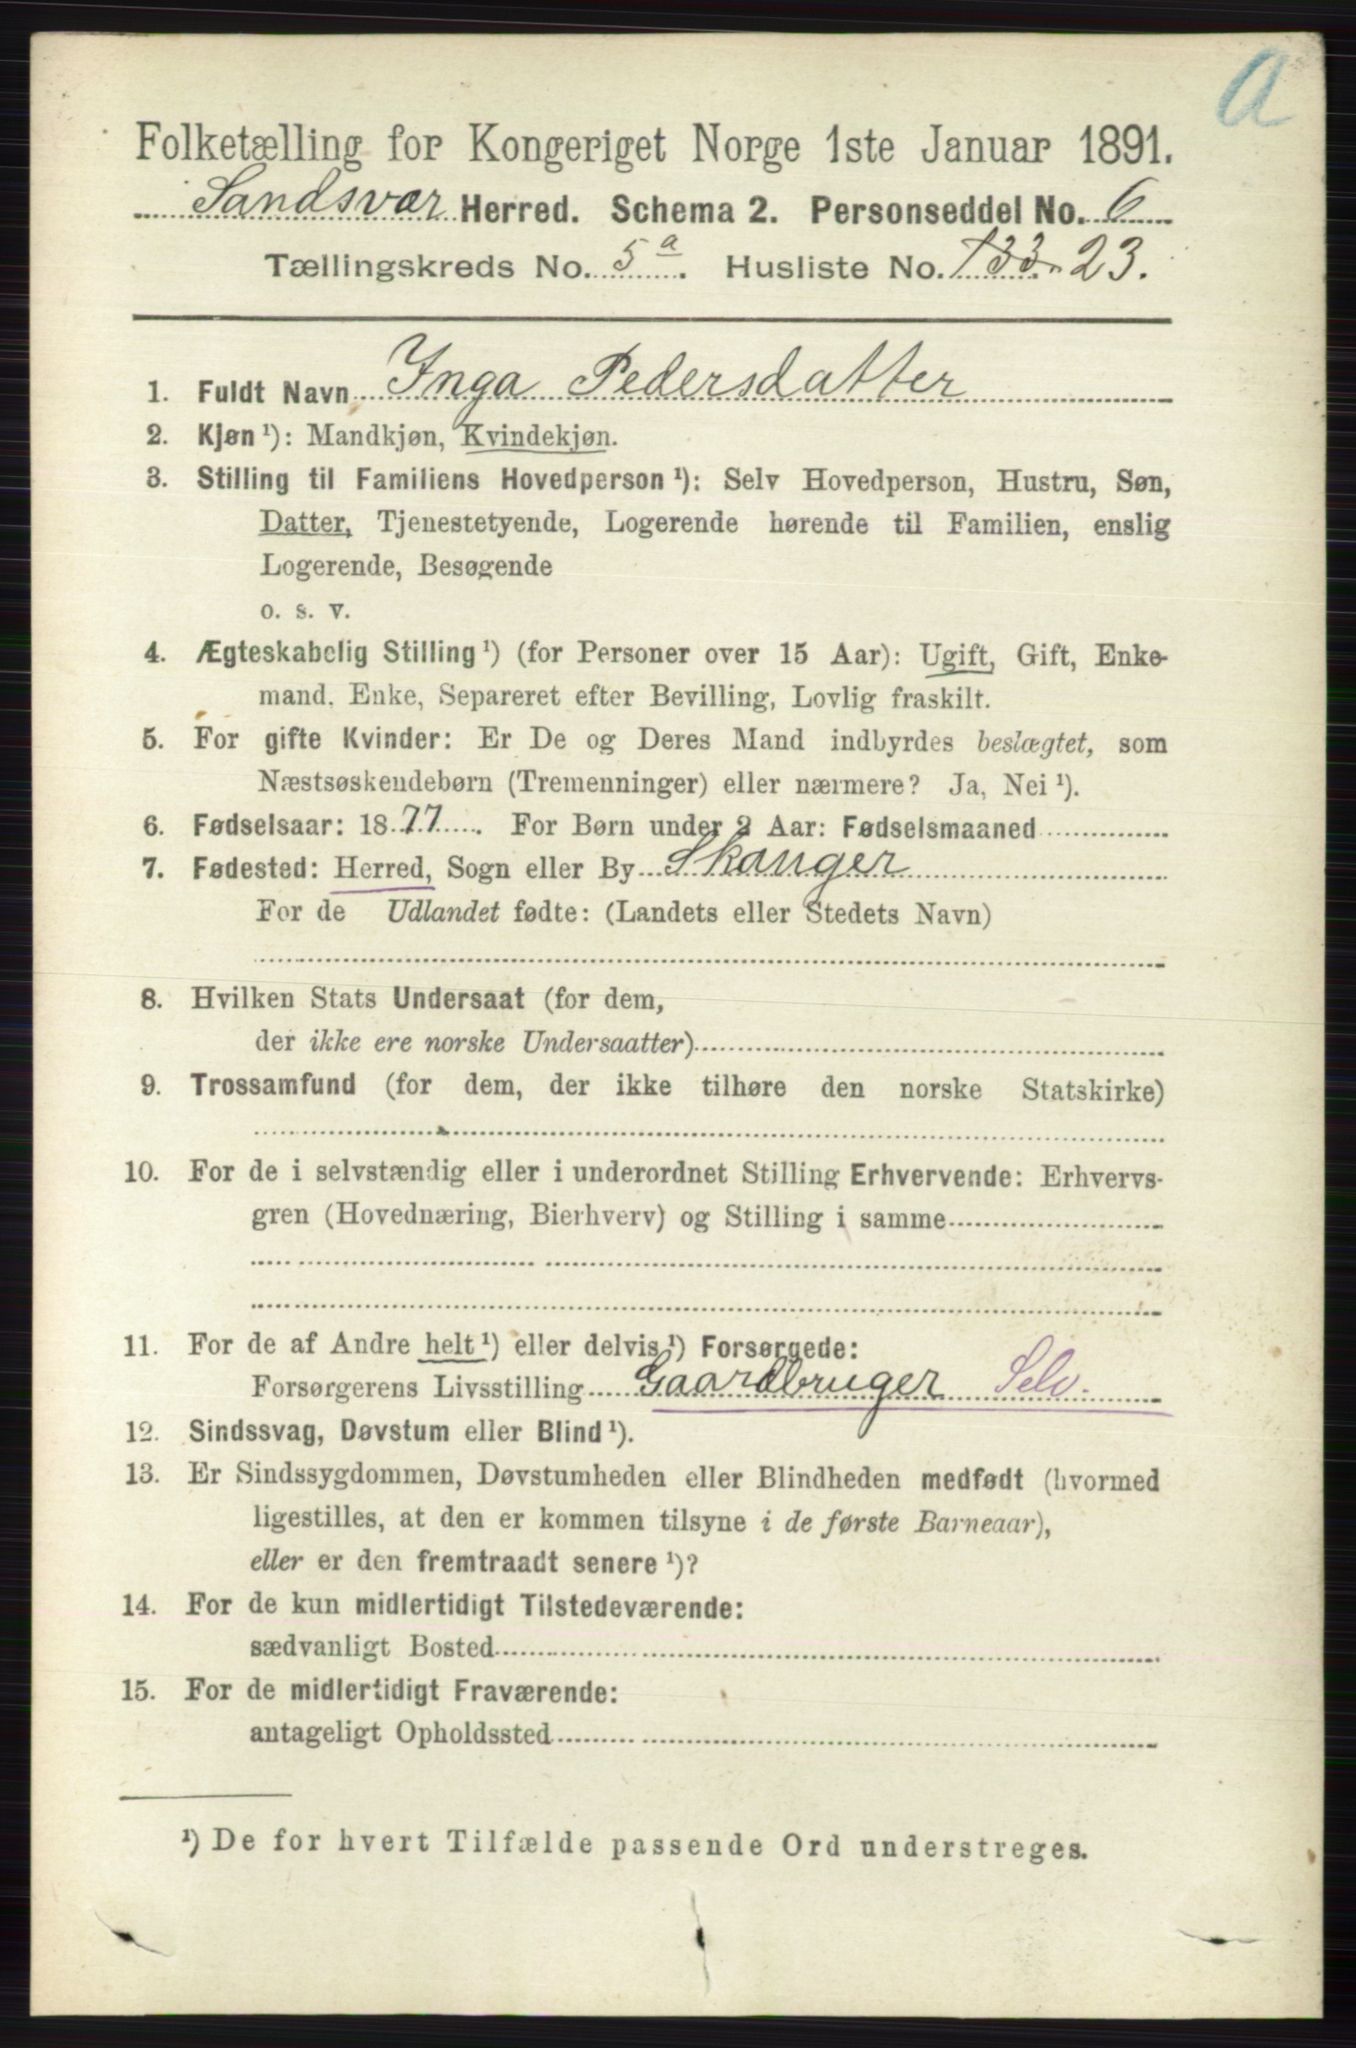 a
Folketælling for Kongeriget Norge 1ste Januar 1891.
Sandsvær Herred. Schema 2. Personseddel No. 6
Tællingskreds No. 5 a. Husliste No. 133. 23.
1. Fuldt Navn Inga Pedersdatter
2. Kjøn ¹): Mandkjøn, Kvindekjøn.
3. Stilling til Familiens Hovedperson ¹): Selv Hovedperson, Hustru, Søn,
Datter, Tjenestetyende, Logerende hørende til Familien, enslig
Logerende, Besøgende
o. s. v.
4. Ægteskabelig Stilling ¹) (for Personer over 15 Aar): Ugift, Gift, Enke-
mand, Enke, Separeret efter Bevilling, Lovlig fraskilt.
5. For gifte Kvinder: Er De og Deres Mand indbyrdes beslægtet, som
Næstsøskendebørn (Tremenninger) eller nærmere? Ja, Nei ¹).
6. Fødselsaar: 1877. For Børn under 2 Aar: Fødselsmaaned
7. Fødested: Herred, Sogn eller By Skouger
For de Udlandet fødte: (Landets eller Stedets Navn)
8. Hvilken Stats Undersaat (for dem,
der ikke ere norske Undersaatter)
9. Trossamfund (for dem, der ikke tilhøre den norske Statskirke)
10. For de i selvstændig eller i underordnet Stilling Erhvervende: Erhvervs-
gren (Hovednæring, Bierhverv) og Stilling i samme
11. For de af Andre helt ¹) eller delvis ¹) Forsørgede:
Forsørgerens Livsstilling Gaardbruger Selv.
12. Sindssvag, Døvstum eller Blind ¹).
13. Er Sindssygdommen, Døvstumheden eller Blindheden medfødt (hvormed
ligestilles, at den er kommen tilsyne i de første Barneaar),
eller er den fremtraadt senere ¹)?
14. For de kun midlertidigt Tilstedeværende:
sædvanligt Bosted
15. For de midlertidigt Fraværende:
antageligt Opholdssted
¹) De for hvert Tilfælde passende Ord understreges.